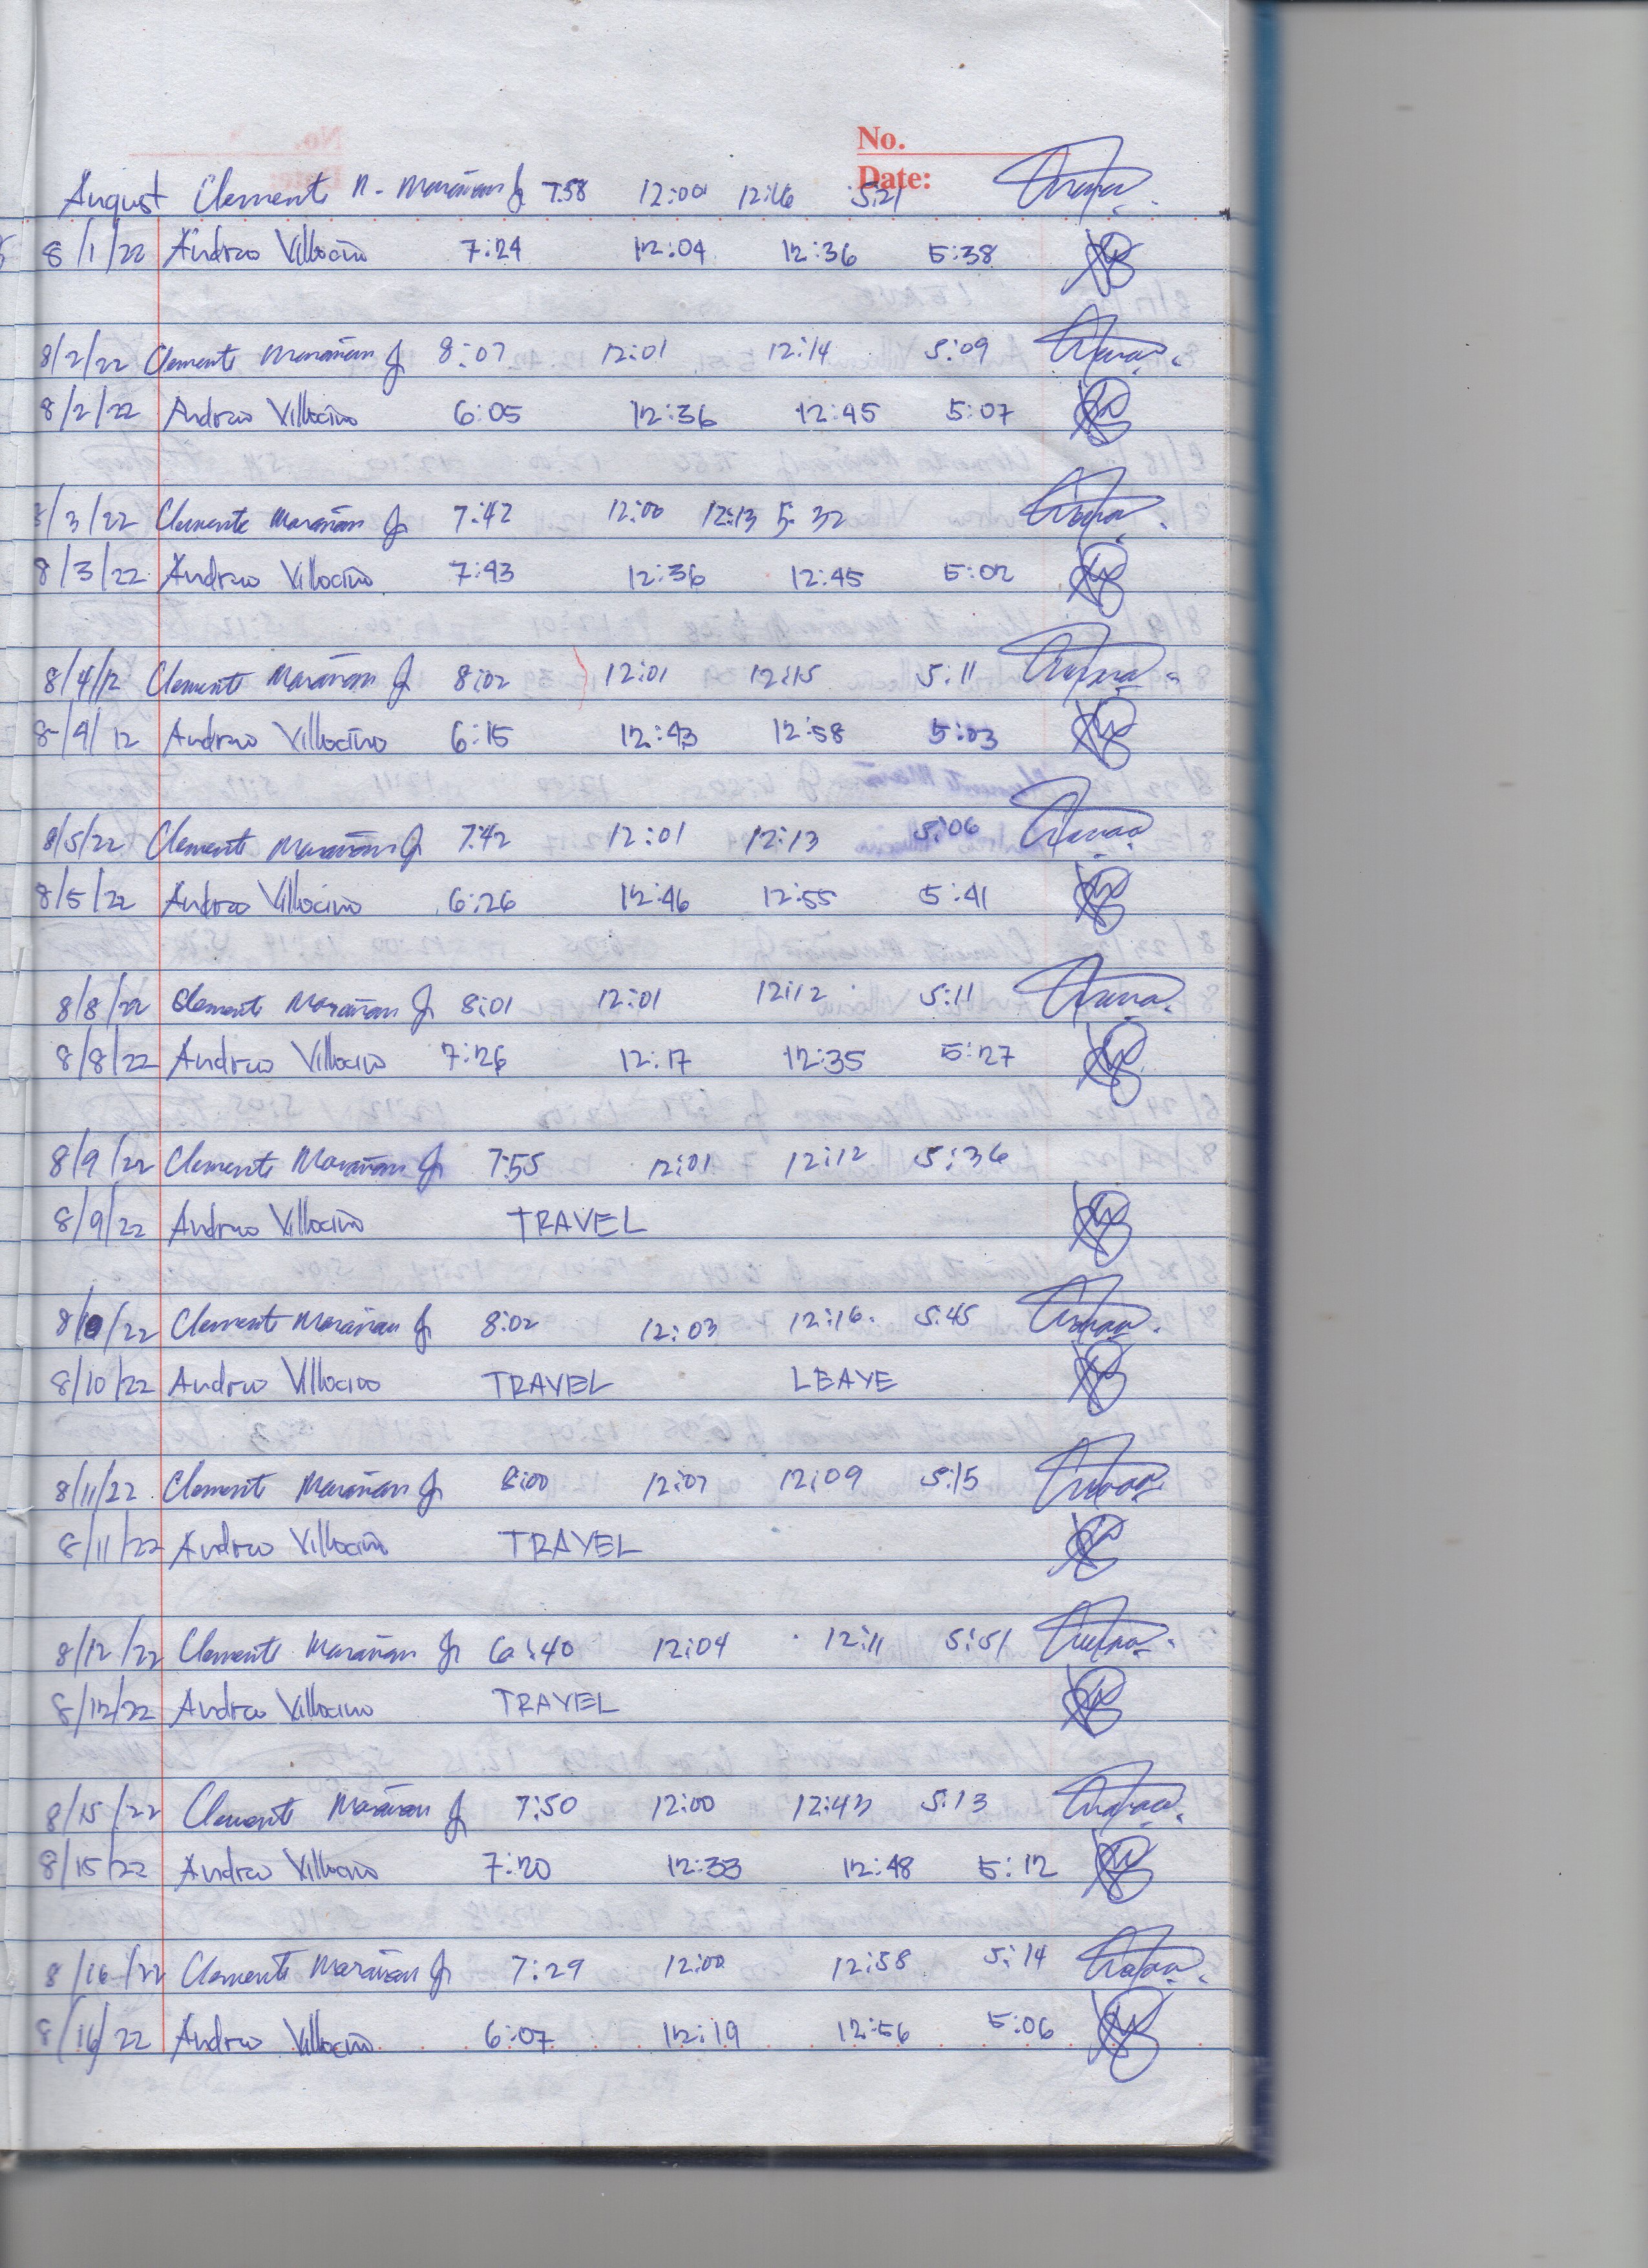 No.
Date:
August Clemente N. Marañan Jr 7:58 12:00 12:46 5:21
8/1/22 Andrew Villocino 7:24 12:04 12:36 5:38
8/2/22 Clemente Marañan Jr 8:07 12:01 12:14 5:09
8/2/22 Andrew Villocino 6:05 12:36 12:45 5:07
8/3/22 Clemente Marañan Jr 7:42 12:00 12:13 5:32
8/3/22 Andrew Villocino 7:43 12:36 12:45 5:02
8/4/12 Clemente Marañan Jr 8:02 12:01 12:15 5:11
8/4/12 Andrew Villocino 6:15 12:43 12:58 5:03
8/5/22 Clemente Marañan Jr 7:42 12:01 12:13 5:06
8/5/22 Andrew Villocino 6:26 12:46 12:55 5:41
8/8/22 Clemente Marañan Jr 8:01 12:01 12:12 5:11
8/8/22 Andrew Villocino 7:26 12:17 12:35 5:27
8/9/22 Clemente Marañan Jr 7:55 12:01 12:12 5:36
8/9/22 Andrew Villocino TRAVEL
8/10/22 Clemente Marañan Jr 8:02 12:03 12:16 5:45
8/10/22 Andrew Villocino TRAVEL LEAVE
8/11/22 Clemente Marañan Jr 8:00 12:07 12:09 5:15
8/11/22 Andrew Villocino TRAVEL
8/12/22 Clemente Marañan Jr 6:40 12:04 12:11 5:51
8/12/22 Andrew Villocino TRAVEL
8/15/22 Clemente Marañan Jr 7:50 12:00 12:43 5:13
8/15/22 Andrew Villocino 7:20 12:33 12:48 5:12
8/16/22 Clemente Marañan Jr 7:29 12:00 12:58 5:14
8/16/22 Andrew Villocino 6:07 12:19 12:56 5:06